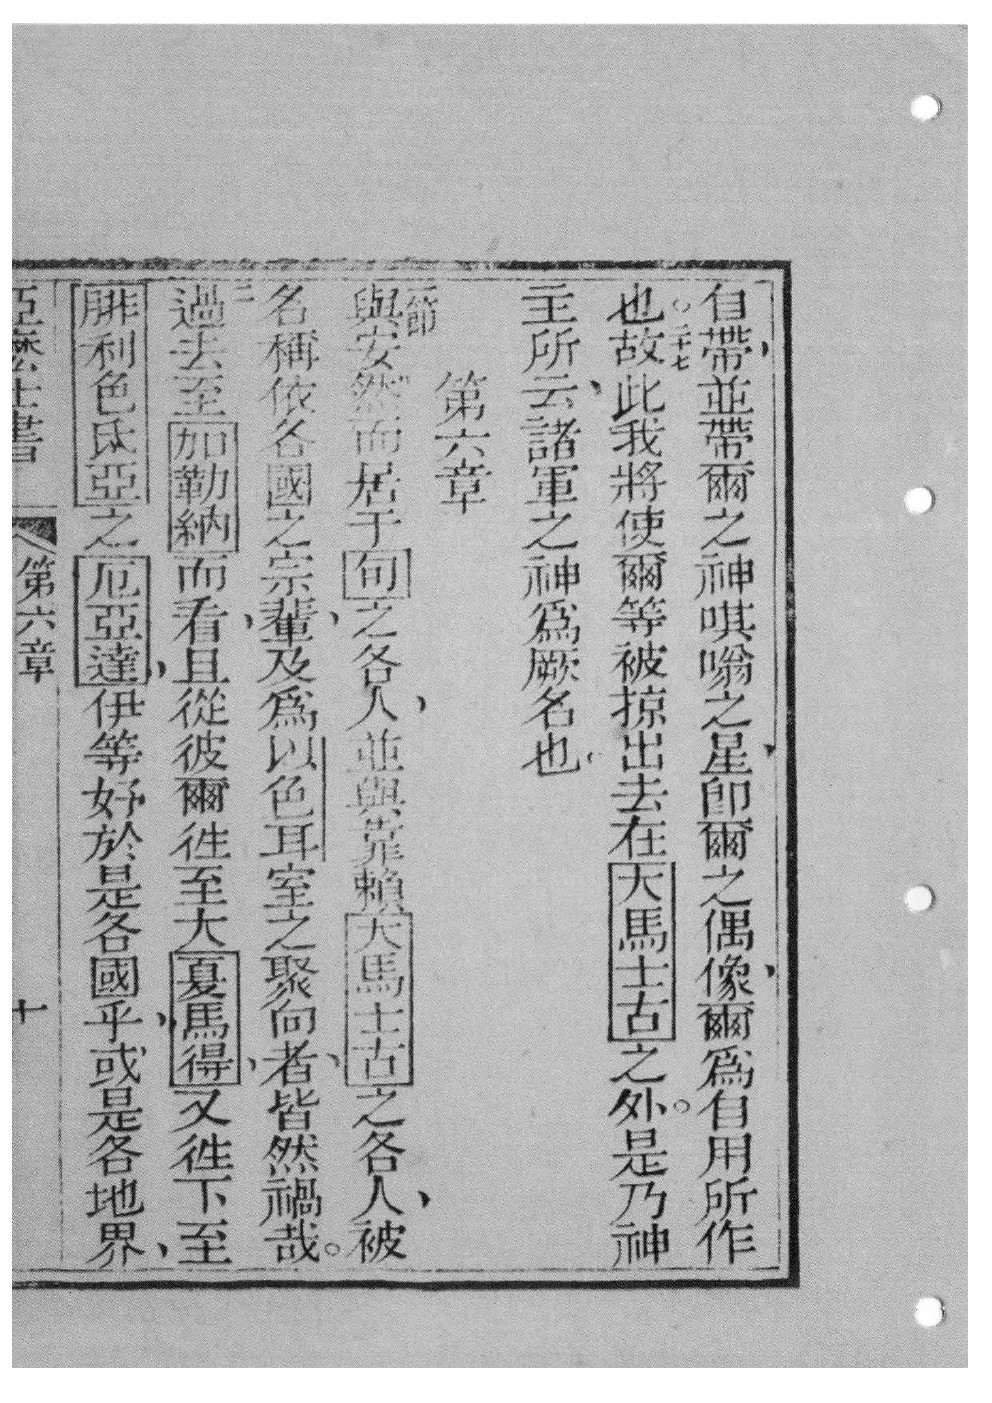 自帶、並帶爾之神唭嗡之星、卽爾之偶像、爾爲自用所作
也。二十七故此我將使爾等被掠出去在大馬士古之外。是乃神
主所云、諸軍之神爲厥名也。
第六章
一節與安然而居于旬之各人、並與靠賴大馬士古之各人、被
名稱依各國之宗輩、及爲以色耳室之聚向者、皆然禍哉。
二過去至加勒納而看、且從彼爾徃至大夏馬得、又徃下至
腓利色氐亞之厄亞達、伊等好於是各國乎、或是各地界、
亞麽士書 第六章 十